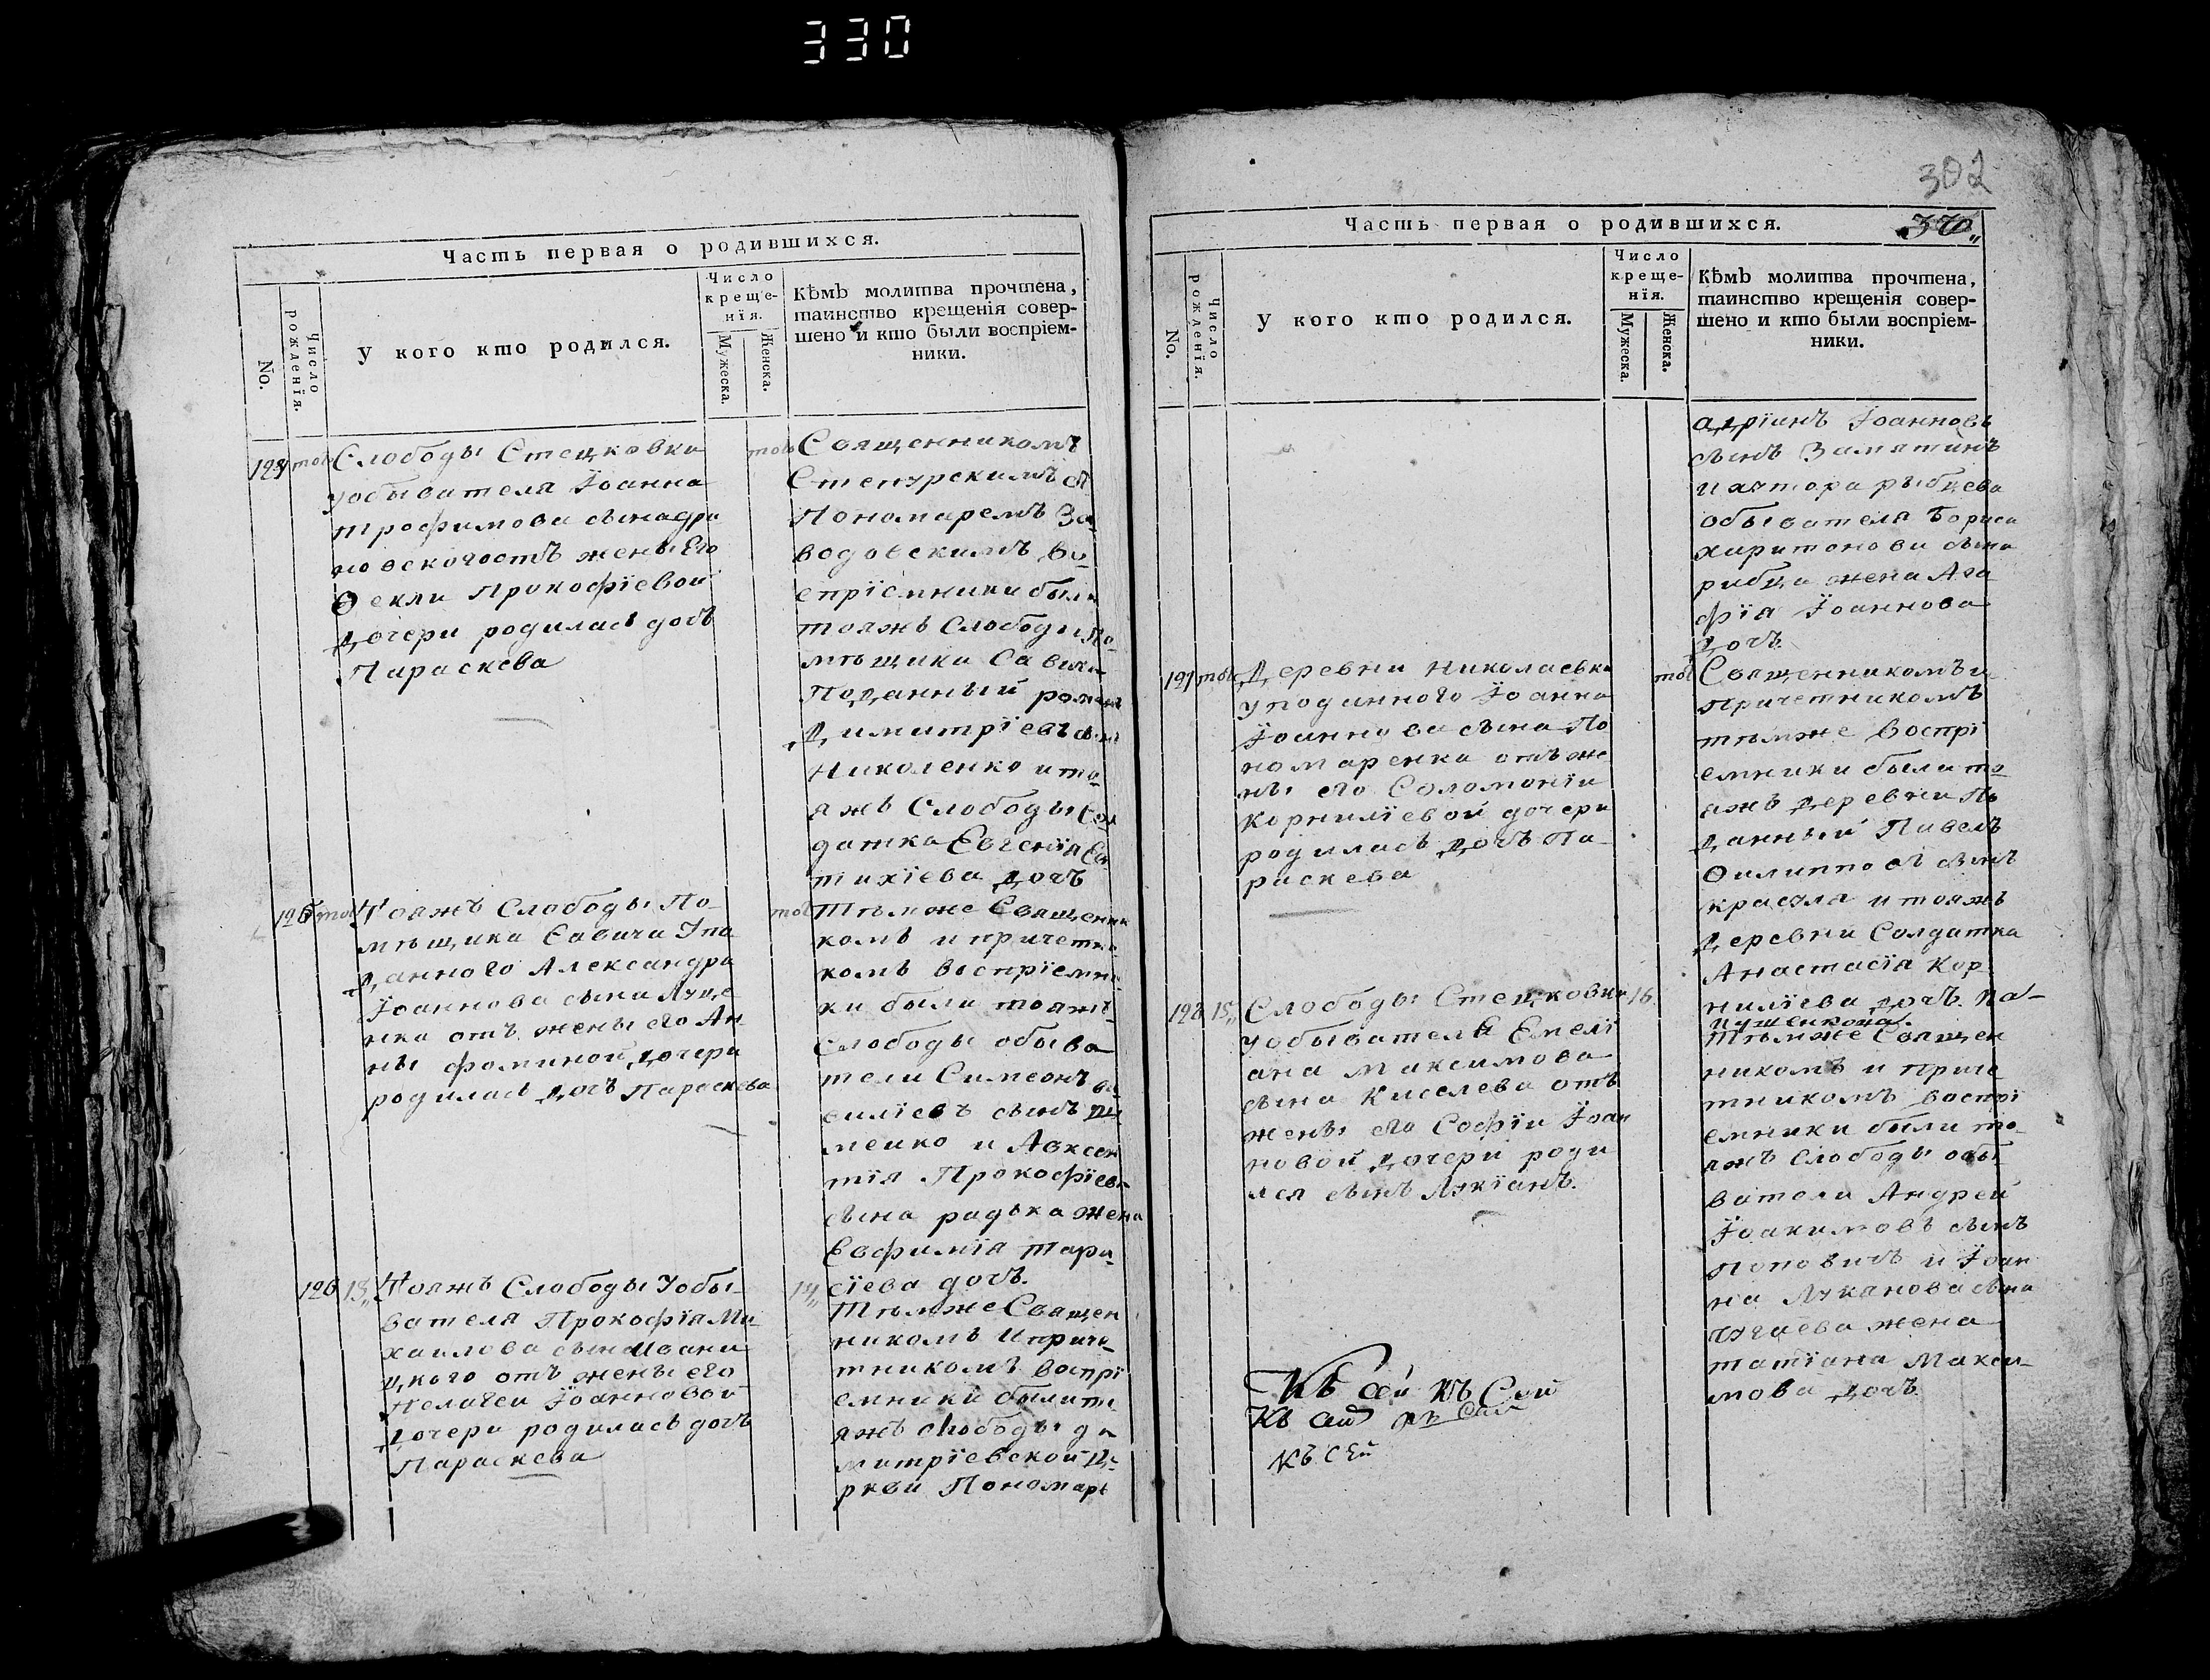 330
Часть первая о родившихся.
No.
Число рожденія.
У кого кто родился.
Число
креще-
нія.
Мужеска.
Женска.
Кѣмъ молитва прочтена,
таинство крещенія совер-
шено и кто были воспріем-
ники.
Слободы Стецковки
уобывателя Іоанна
трофимова сына
жены Его
Ѳеклы Прокофіевой
дочери родилась дочь
Параскева
Священникомъ
Пономаремъ За-
водовскимъ во-
спріемники были
тояжъ Слободы По-
мѣщика Савича
Подданный романъ
Димитріевъ сынъ
Николенко и то-
яжъ Слободы Сол
датка Евгенія Ев
тихіева дочь
125
Тояжъ Слободы По-
мѣщика Савича Упо
данного Александра
Іоаннова сына Луце
нка отъ жены его Ан
ны фоминой дочери
родилась дочь Параскева
Тѣмже Священни
комъ и причетни
комъ воспріемни
ки были тояжъ
слободы обыва
тели Симеонъ ва
силіевъ сынъ
и Авксен
тія Прокофіева
сына радька жена
Евфимія тара
сіева дочь.
126
13,,
Тояжъ Слободы Уобы-
вателя Прокофія Ми-
хаилова сына Ивани
цкого отъ жены его
Пелагеи Іоанновой
дочери родилась дочь
Параскева
14,,
Тѣмже Священ
никомъ и приче-
тникомъ воспрі
емники были то
яжъ слободы ди
митріевской Це
ркви Пономарь
302
Часть первая о родившихся.
370,,
No.
Число рожденія.
У кого кто родился.
Число
креще-
нія.
Мужеска.
Женска.
Кѣмъ молитва прочтена,
таинство крещенія совер-
шено и кто были воспріем-
ники.
адріанъ Іоанновъ
сынъ Замятинъ
и хутора рыбцева
обывателя Бориса
харитонова сына
рибца жена Ага
фія Іоаннова
дочь
127
Деревни Николаевки
уподанного Іоанна
Іоаннова сына По
номаренка отъ же
ны его Соломоніи
Корниліевой дочери
родилась дочь Па-
раскева
Священникомъ и
причетникомъ
тѣмже воспрі
емники были то
яжъ деревни По
данный Павелъ
Филипповъ сынъ
красуля и тояжъ
деревни Солдатка
Анастасія Кор
ниліева дочь. Па-
пушенкова.
128
15,,
Слободы Стецковки
уобывателя Емелі
ана Максимова
сына Киселева отъ
жены его Софіи Іоан
новой дочери роди
лся сынъ Лукіанъ.
16.
Тѣмже Священ
никомъ и приче
тникомъ воспрі
емники были то-
яжъ слободы обы-
ватели Андрей
Іоакимовъ сынъ
Поповичъ и Іоан
на Луканова сына
Чугаева жена
татіана Макси-
мова дочь
Къ сей Къ Сей
Къ сей
Къ сей